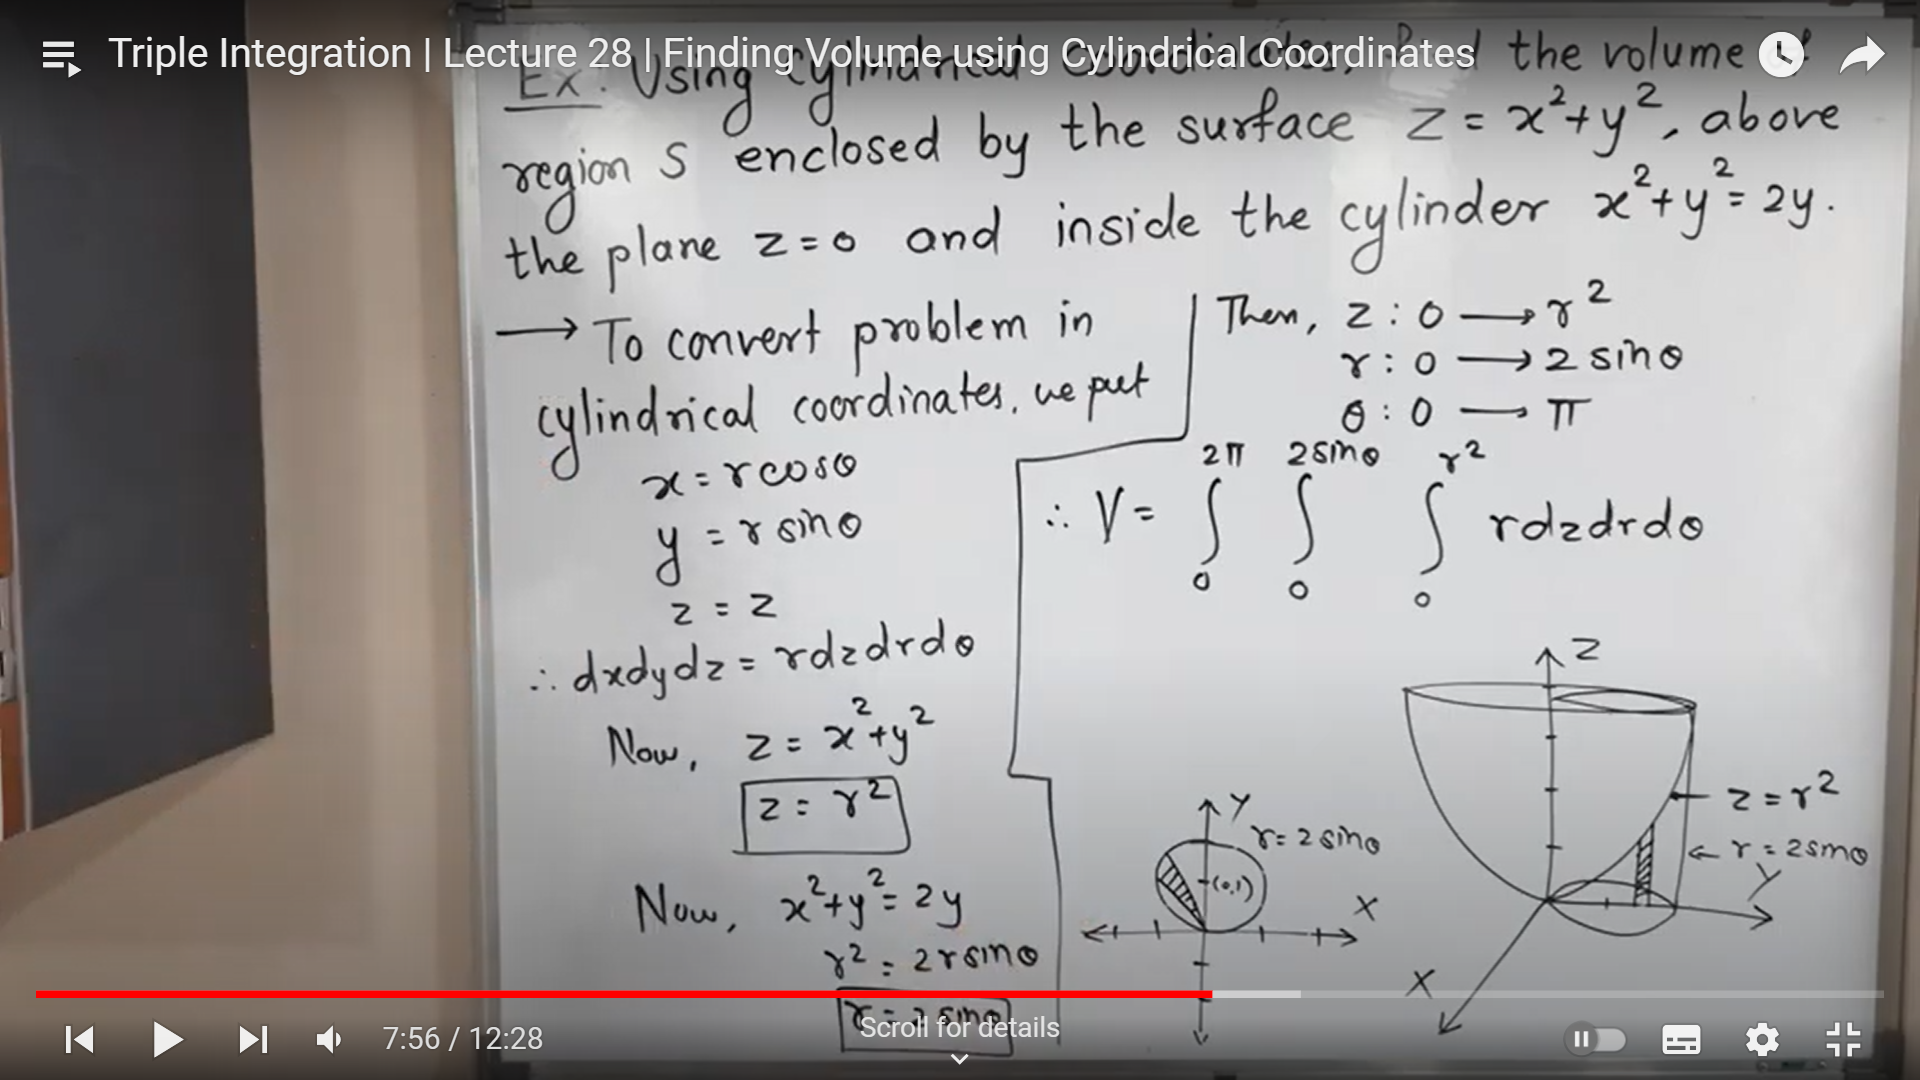 Triple Integration | Lecture 28 | Finding Volume using Cylindrical Coordinates
Ex. Using Cylindrical Coordinates, the volume of
region S enclosed by the surface z = x²+y², above
the plane z=0 and inside the cylinder x²+y²= 2y.
→ To convert problem in
cylindrical coordinates, we put
x = r cosθ
y = r sinθ
z = z
∴ dxdydz = rdzdrdθ
Now, z = x²+y²
z = r²
Now, x²+y² = 2y
r² = 2r sinθ
r = 2 sinθ
Then, z : 0 → r²
r : 0 → 2 sinθ
θ : 0 → π
∴ V = ∫₀^2π ∫₀^2sinθ ∫₀^r² rdzdrdθ
Y
r = 2 sinθ
(0,1)
X
Z
z = r²
← r = 2sinθ
Y
X
Scroll for details
7:56 / 12:28